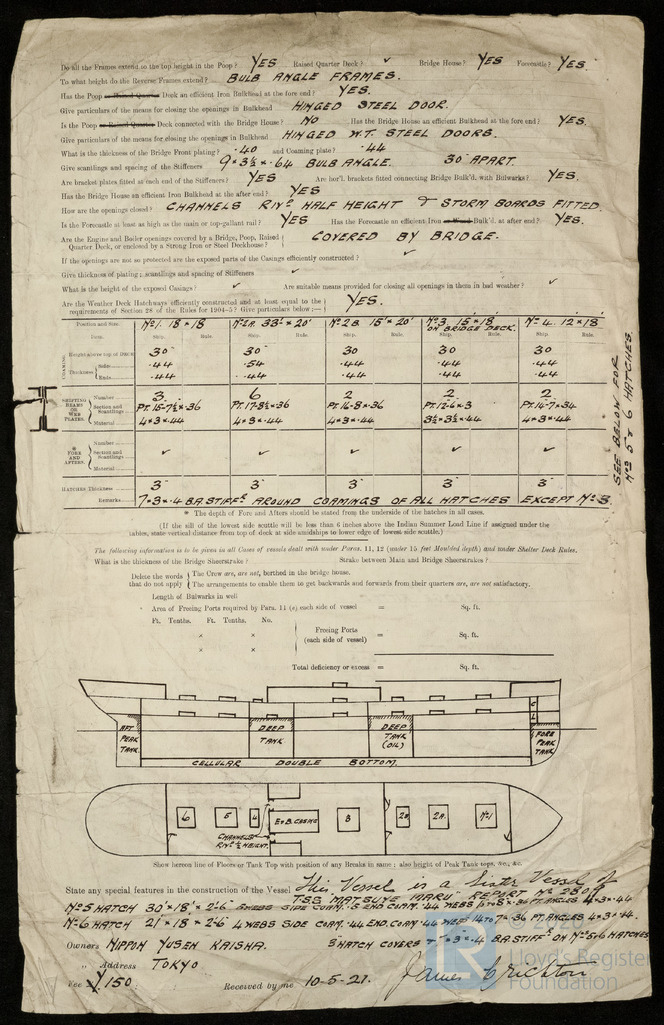 Do all the Frames extend to the top height in the Poop? YES Raised Quarter Deck? ✓ Bridge House? YES Forecastle? YES.
To what height do the Reverse Frames extend? BULB ANGLE FRAMES.
Has the Poop or Raised Quarter Deck an efficient Iron Bulkhead at the fore end? YES.
Give particulars of the means for closing the openings in Bulkhead HINGED STEEL DOOR.
Is the Poop or Raised Quarter Deck connected with the Bridge House? NO Has the Bridge House an efficient Bulkhead at the fore end? YES.
Give particulars of the means for closing the openings in Bulkhead HINGED W.T. STEEL DOORS.
What is the thickness of the Bridge Front plating? .40 and Coaming plate? .44
Give scantlings and spacing of the Stiffeners 9 × 3½ × .64 BULB ANGLE. 30 APART.
Are bracket plates fitted at each end of the Stiffeners? YES Are hor'l. brackets fitted connecting Bridge Bulk'd. with Bulwarks? YES.
Has the Bridge House an efficient Iron Bulkhead at the after end? YES
How are the openings closed? CHANNELS RIVD HALF HEIGHT & STORM BOARDS FITTED
Is the Forecastle at least as high as the main or top-gallant rail? YES Has the Forecastle an efficient Iron or Wood Bulk'd. at after end? YES.
Are the Engine and Boiler openings covered by a Bridge, Poop, Raised
Quarter Deck, or enclosed by a Strong Iron or Steel Deckhouse? COVERED BY BRIDGE.
If the openings are not so protected are the exposed parts of the Casings efficiently constructed? ✓
Give thickness of plating; scantlings and spacing of Stiffeners ✓
What is the height of the exposed Casings? ✓ Are suitable means provided for closing all openings in them in bad weather? ✓
Are the Weather Deck Hatchways efficiently constructed and at least equal to the
requirements of Section 28 of the Rules for 1904-5? Give particulars below:— YES.
Position and Size. No 1. 18 × 18 No 2A. 33' × 20' No 2B 15' × 20' No 3 15 × 18 ON BRIDGE DECK. No 4. 12 × 18
Item. Ship. Rule. Ship. Rule. Ship. Rule. Ship. Rule. Ship. Rule.
COAMING Height above top of DECK 30 30 30 30 30
Thickness Side .44 .54 .44 .44 .44
Ends .44 .44 .44 .44 .44
SHIFTING BEAMS OR WEB PLATES. Number 3 6 2 2 2
Section and Scantlings PT. 15-7½ × .36 PT. 17-8½ × .36 PT. 16-8 × .36 PT. 12-6 × 3 PT. 14-7 × .34
Material 4 × 3 × .44 4 × 3 × .44 4 × 3 × .44 3½ × 3½ × .44 4 × 3 × .44
* FORE AND AFTERS. Number
Section and Scantlings ✓ ✓ ✓ ✓ ✓
Material
HATCHES Thickness 3 3 3 3 3
Remarks 7 × 3 × .4 B.A. STIFFS AROUND COAMINGS OF ALL HATCHES EXCEPT No 3.
SEE BELOW FOR
Nos 5 & 6 HATCHES.
* The depth of Fore and Afters should be stated from the underside of the hatches in all cases.
(If the sill of the lowest side scuttle will be less than 6 inches above the Indian Summer Load Line if assigned under the
tables, state vertical distance from top of deck at side amidships to lower edge of lowest side scuttle.)
The following information is to be given in all Cases of vessels dealt with under Paras. 11, 12 (under 15 feet Moulded depth) and under Shelter Deck Rules.
What is the thickness of the Bridge Sheerstrake? Strake between Main and Bridge Sheerstrakes?
Delete the words The Crew are, are not, berthed in the bridge house.
that do not apply The arrangements to enable them to get backwards and forwards from their quarters are, are not satisfactory.
Length of Bulwarks in well
Area of Freeing Ports required by Para. 11 (e) each side of vessel = Sq. ft.
Ft. Tenths. Ft. Tenths. No.
× × Freeing Ports
(each side of vessel) = Sq. ft.
× ×
Total deficiency or excess = Sq. ft.
AFT PEAK TANK.
DEEP TANK
DEEP TANK (OIL)
C
L
FORE PEAK TANK.
CELLULAR DOUBLE BOTTOM.
6 5 4 E & B. CASING 3 2B 2A. No 1
CHANNELS RIVD ½ HEIGHT.
Show hereon line of Floors or Tank Top with position of any Breaks in same; also height of Peak Tank tops, &c., &c.
State any special features in the construction of the Vessel This Vessel is a Sister Vessel of
T.S.S MATSUYE MARU REPORT No 2804
No 5 HATCH 30' × 18' × 2'-6 SIDE COAM. & END COAM. .44 WEBS 16 × 8 × .36 PT. ANGLES 4 × 3 × .44
No 6 HATCH 21' × 18 × 2'-6 4 WEBS SIDE COAM. .44 END COAM. .44 WEBS 14 TO 7 × .36 PT. ANGLES 4 × 3 × .44.
Owners NIPPON YUSEN KAISHA. 3 HATCH COVERS & 7 × 3 × .4 B.A STIFFS ON Nos 5 & 6 HATCHES
" Address TOKYO
Fee ¥.150 Received by me 10-5-21.
© 2020
LR
Lloyd's Register
Foundation